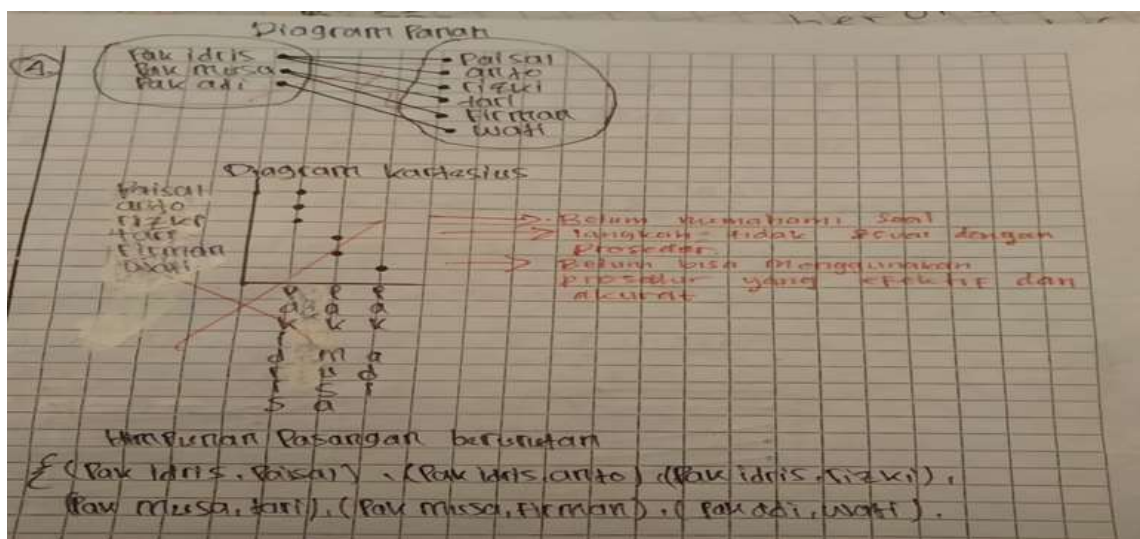 Diagram Panah
4
Pak idris
Pak musa
Pak adi
Paisal
anto
rizki
tari
Firman
wati
Diagram kartesius
Faisal
anto
rizki
tari
Firman
Wati
Pak idris
Pak musa
Pak adi
Belum memahami Soal
langkah-tidak sesuai dengan
Prosedur.
Belum bisa menggunakan
Prosedur yang efektif dan
akurat
Himpunan Pasangan berurutan
{(Pak idris, Paisal), (Pak idris, anto), (Pak idris, rizki),
(Pak musa, tari), (Pak musa, Firman), (Pak adi, wati).